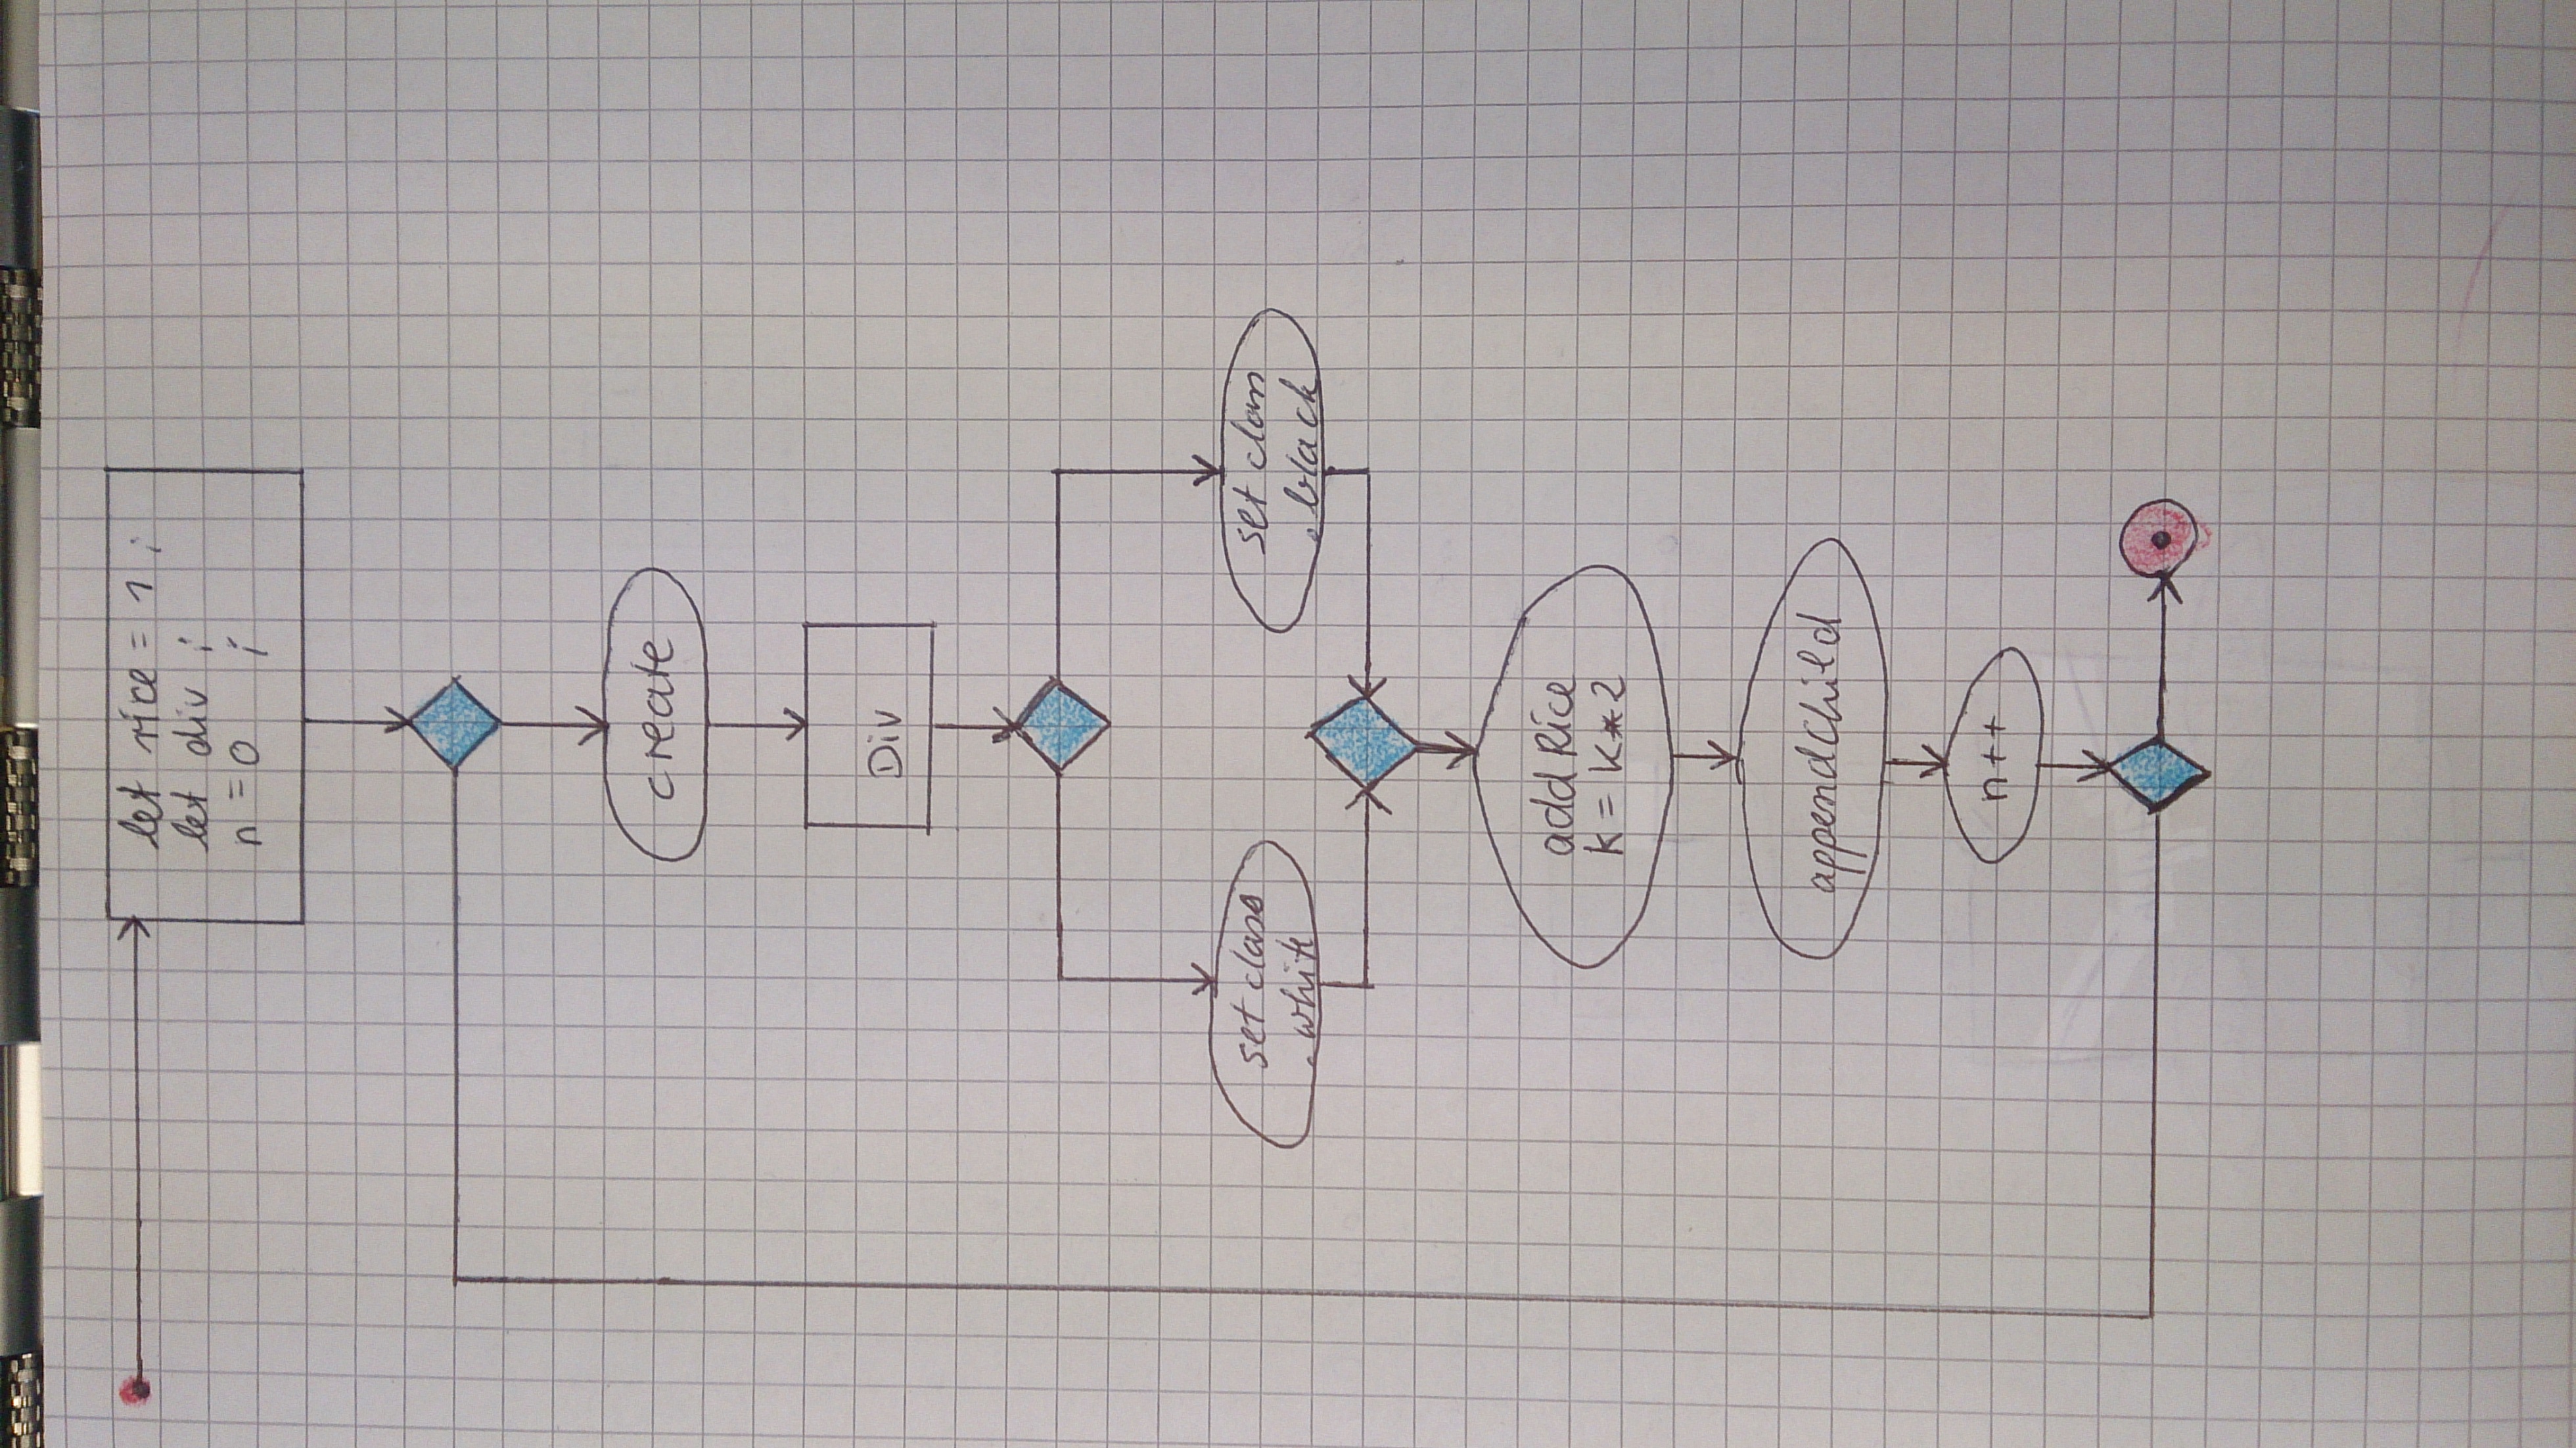 let rice = 1 ;
let div ;
n = 0 ;
create
Div
set class
.white
set class
.black
add Rice
k = k*2
appendChild
n++